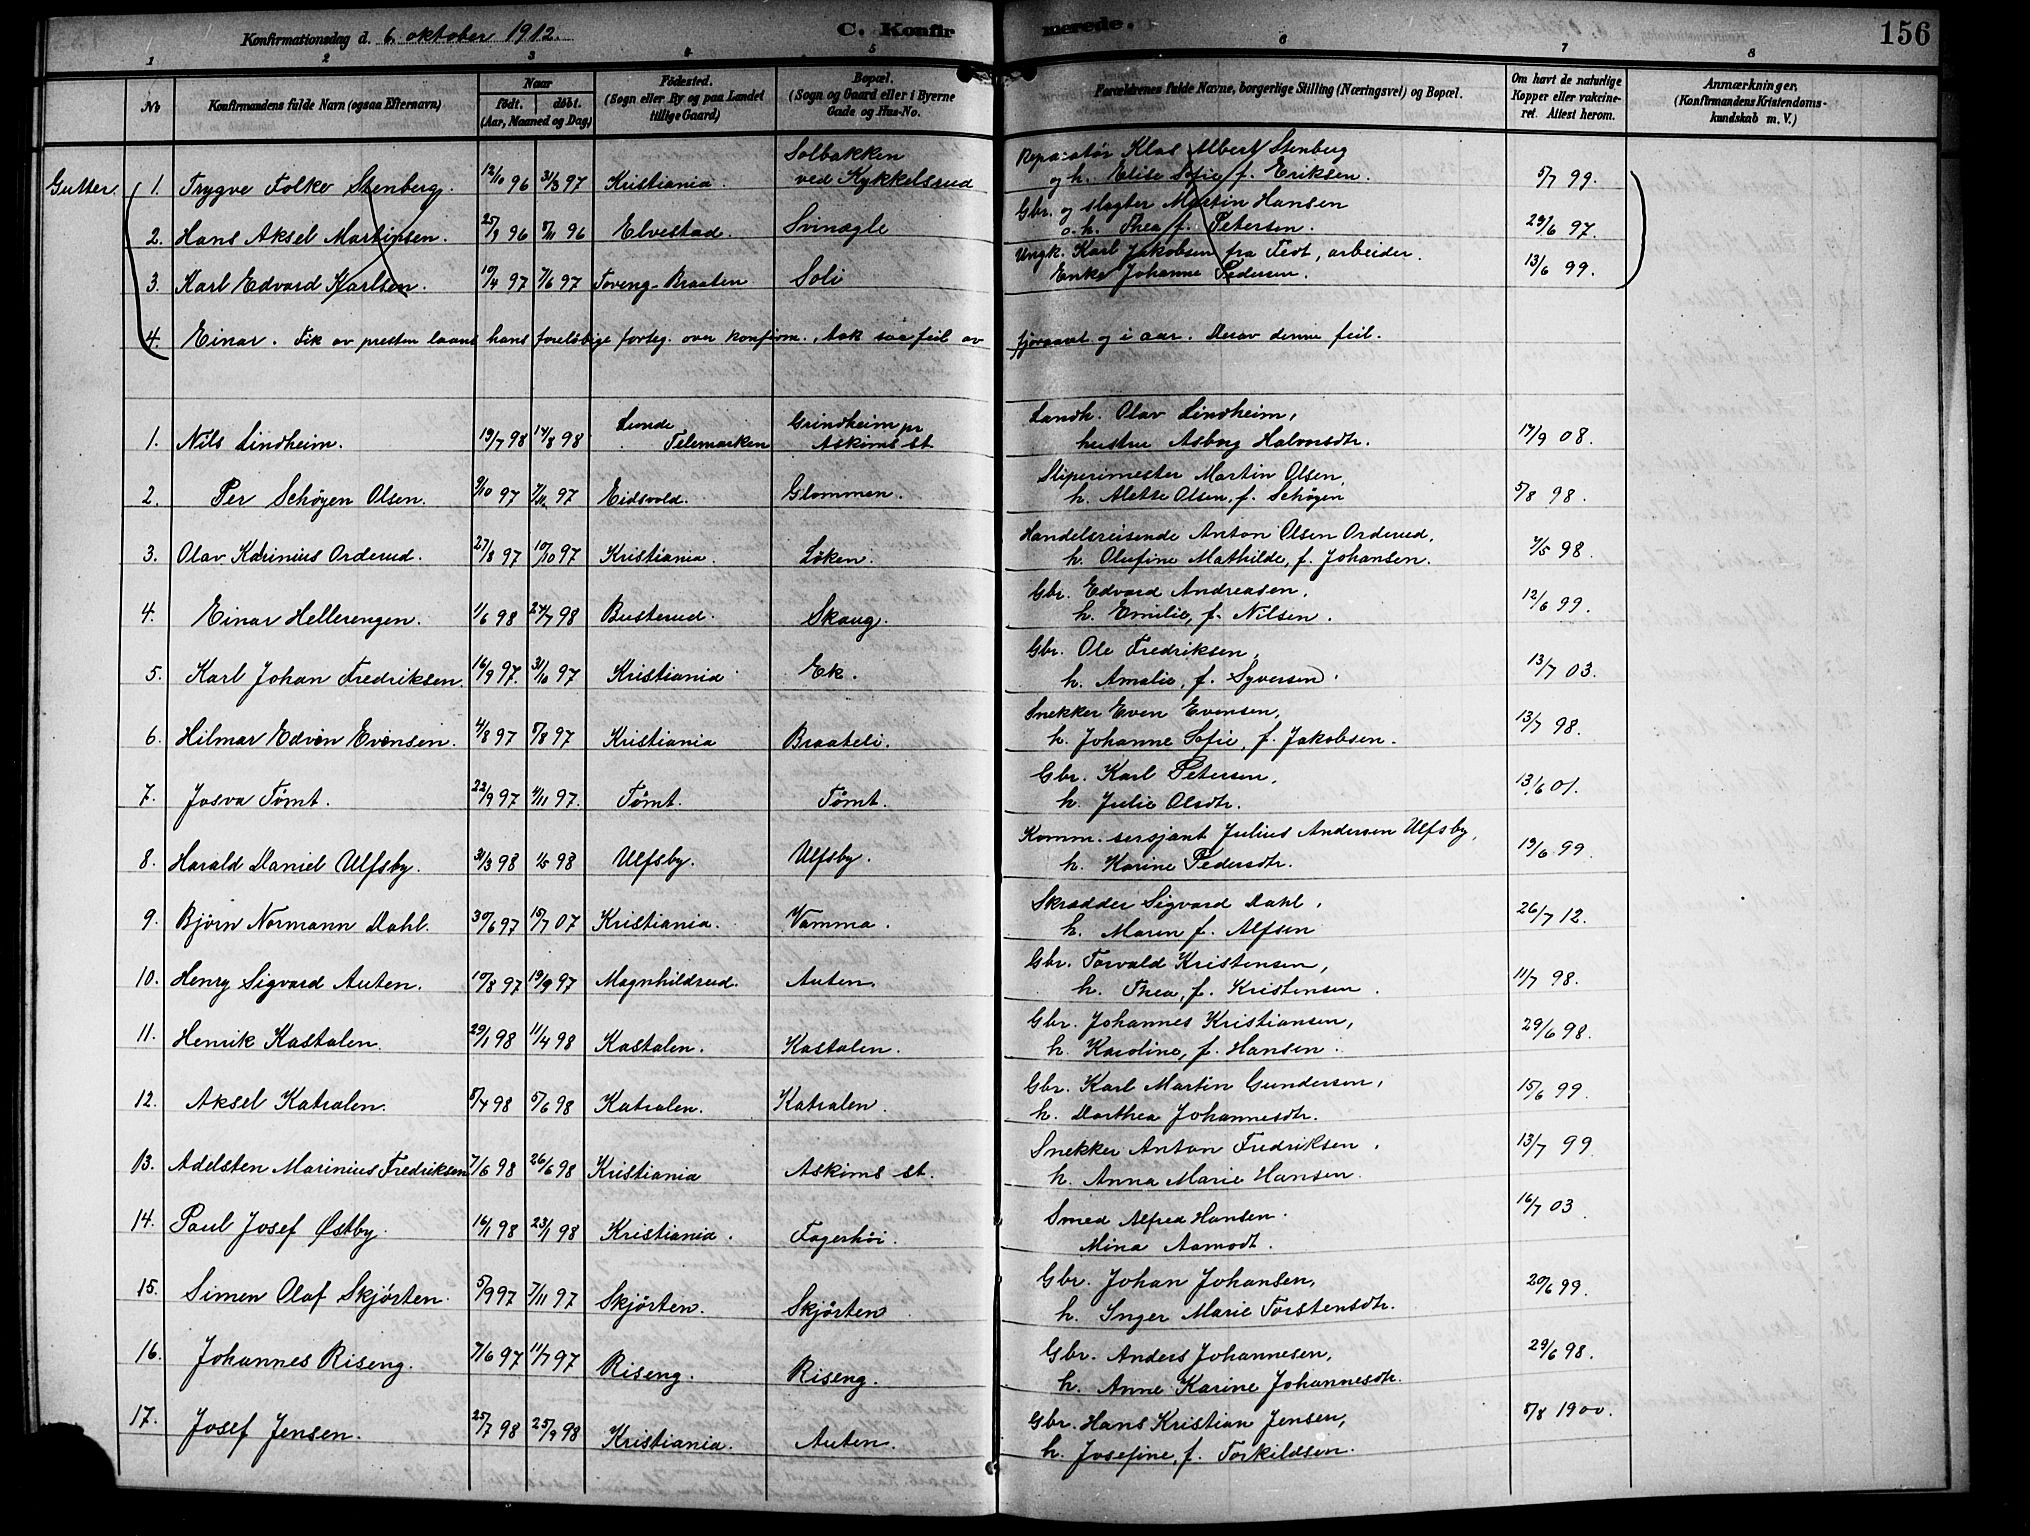 Konfirmationsdag d. 6. oktober 1912. C. Konfirmerede. 156
1 2 3 4 5 6 7 8
No
Konfirmandens fulde Navn (ogsaa Efternavn)
Naar
født. døbt.
(Aar, Maaned og Dag)
Fødested.
(Sogn eller By og paa Landet
tillige Gaard)
Bopæl.
(Sogn og Gaard eller i Byerne
Gade og Hus-No.
Forældrenes fulde Navne, borgerlige Stilling (Næringsvei) og Bopæl.
Om havt de naturlige
Kopper eller vakcine-
ret. Attest herom.
Anmærkninger,
(Konfirmandens Kristendoms-
kundskab m. V.)
Gutter.
1. Trygve Folke Stenberg. 12/10 96 31/3 97 Kristiania. Solbakken ved Kykkelsrud
Reparatør Klas Albert Stenberg
og h. Elise Sofie f. Eriksen. 5/7 99.
2. Hans Aksel Martinsen. 25/9 96 8/11 96 Elvestad. Svinøgle
Gbr. og slagter Martin Hansen
o. h. Thea f. Petersen. 29/6 97.
3. Karl Edvard Karlsen. 10/4 97 7/6 97 Toveng-Braaten Soli
Ungk. Karl Jakobsen fra Tedt, arbeider.
Enke Johanne Pedersen. 13/6 99.
4. Einar. Fik av presten laant hans foreløbige forteg. over konfirm., tok saa feil av fjoraaret og i aar. Derav denne feil.
1. Nils Lindheim. 19/7 98 14/8 98 Lunde Telemarken Grindheim pr Askims st.
Landh. Olav Lindheim,
hustru Asborg Halvorsdtr. 17/9 08.
2. Per Schøyen Olsen. 9/10 97 7/11 97 Eidsvold. Glommen.
Sliperimester Martin Olsen,
h. Alette Olsen, f. Schøyen 5/8 98.
3. Olav Karinius Orderud. 27/8 97 10/10 97 Kristiania. Løken.
Handelsreisende Anton Olsen Orderud,
h. Olufine Mathilde, f. Johansen. 7/5 98.
4. Einar Hellerengen. 1/6 98 24/7 98 Busterud. Skaug.
Gbr. Edvard Andreasen,
h. Emilie, f. Nilsen. 12/6 99.
5. Karl Johan Fredriksen. 16/9 97. 31/10 97 Kristiania Ek.
Gbr. Ole Fredriksen,
h. Amalie, f. Syversen. 13/7 03.
6. Hilmar Edvin Evensen. 4/8 97 8/8 97 Kristiania Braateli.
Snekker Even Evensen,
h. Johanne Sofie, f. Jakobsen. 13/7 98.
7. Josva Tømt. 22/9 97 4/11 97. Tømt. Tømt.
Gbr. Karl Petersen,
h. Julie Olsdtr. 13/6 01.
8. Harald Daniel Ulfsby. 31/3 98 1/5 98 Ulfsby. Ulfsby.
Komm. sersjant Julius Andersen Ulfsby,
h. Karine Pedersdtr. 19/6 99.
9. Bjørn Normann Dahl. 30/6 97 10/7 07 Kristiania. Vamma.
Skrædder Sigvard Dahl,
h. Maren f. Alfsen 26/7 12.
10. Henry Sigvard Auten. 10/8 97 19/9 97 Magnhildrud. Auten.
Gbr. Torvald Kristensen,
h. Thea, f. Kristensen. 11/7 98.
11. Henrik Kastalen. 29/1 98 11/4 98 Kastalen. Kastalen.
Gbr. Johannes Kristiansen,
h. Karoline, f. Hansen. 29/6 98.
12. Aksel Katralen. 8/4 98 5/6 98 Katralen. Katralen.
Gbr. Karl Martin Gundersen,
h. Dorthea Johannesdtr. 15/6 99.
13. Adelsten Marinius Fredriksen 7/6 98 26/6 98 Kristiania Askims st.
Snekker Anton Fredriksen,
h. Anna Marie Hansen. 13/7 99
14. Paul Josef Østby. 16/1 98 23/1 98 Kristiania. Fagerhøi.
Smed Alfred Hansen.
Mina Aamodt. 16/7 03
15. Simen Olaf Skjørten. 5/9 97 7/11 97 Skjørten. Skjørten
Gbr. Johan Johansen,
h. Inger Marie Torstensdtr. 20/6 99.
16. Johannes Riseng. 7/6 97 11/7 97 Riseng. Riseng.
Gbr. Anders Johannesen,
h. Anne Karine Johannesdtr. 29/6 98.
17. Josef Jensen. 25/7 98 25/9 98 Kristiania. Auten.
Gbr. Hans Kristian Jensen,
h. Josefine, f. Torkildsen. 8/8 1900.